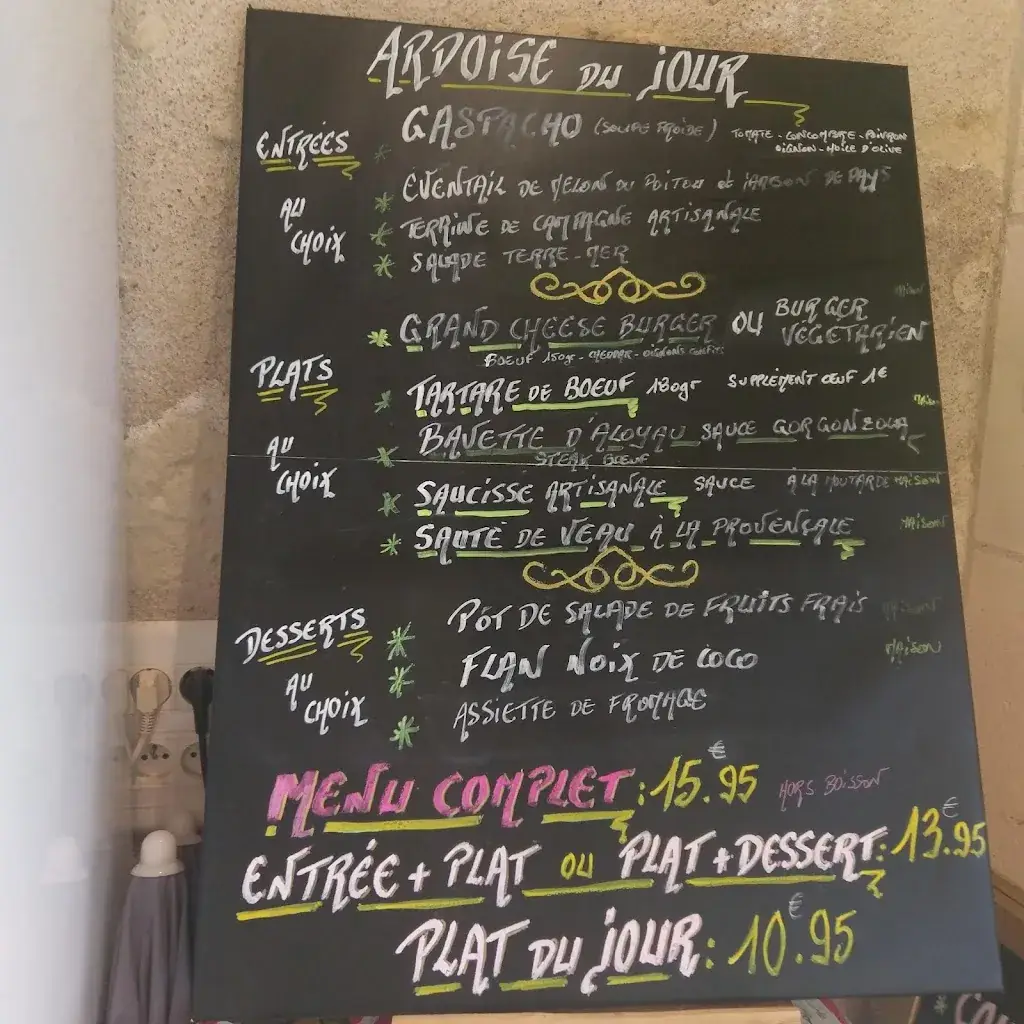 ARDOISE DU JOUR
ENTRÉES
AU CHOIX
GASPACHO (SOUPE FROIDE) TOMATE - CONCOMBRE - POIVRON
OIGNON - HUILE D'OLIVE
* EVENTAIL DE MELON DU POITOU et JAMBON DE PAYS
* TERRINE DE CAMPAGNE ARTISANALE
* SALADE TERRE-MER
PLATS
AU CHOIX
* GRAND CHEESE BURGER OU BURGER VÉGÉTARIEN
BOEUF 150gr - CHEDDAR - OIGNONS CONFITS
* TARTARE DE BOEUF 180gr SUPPLÉMENT ŒUF 1€
* BAVETTE D'ALOYAU SAUCE GORGONZOLA
STEAK BOEUF
* SAUCISSE ARTISANALE SAUCE À LA MOUTARDE MAISON
* SAUTÉ DE VEAU À LA PROVENÇALE MAISON
DESSERTS
AU CHOIX
* PÔT DE SALADE DE FRUITS FRAIS MAISON
* FLAN NOIX DE COCO MAISON
* ASSIETTE DE FROMAGE
MENU COMPLET : 15.95€ HORS BOISSON
ENTRÉE + PLAT OU PLAT + DESSERT : 13.95€
PLAT DU JOUR : 10.95€